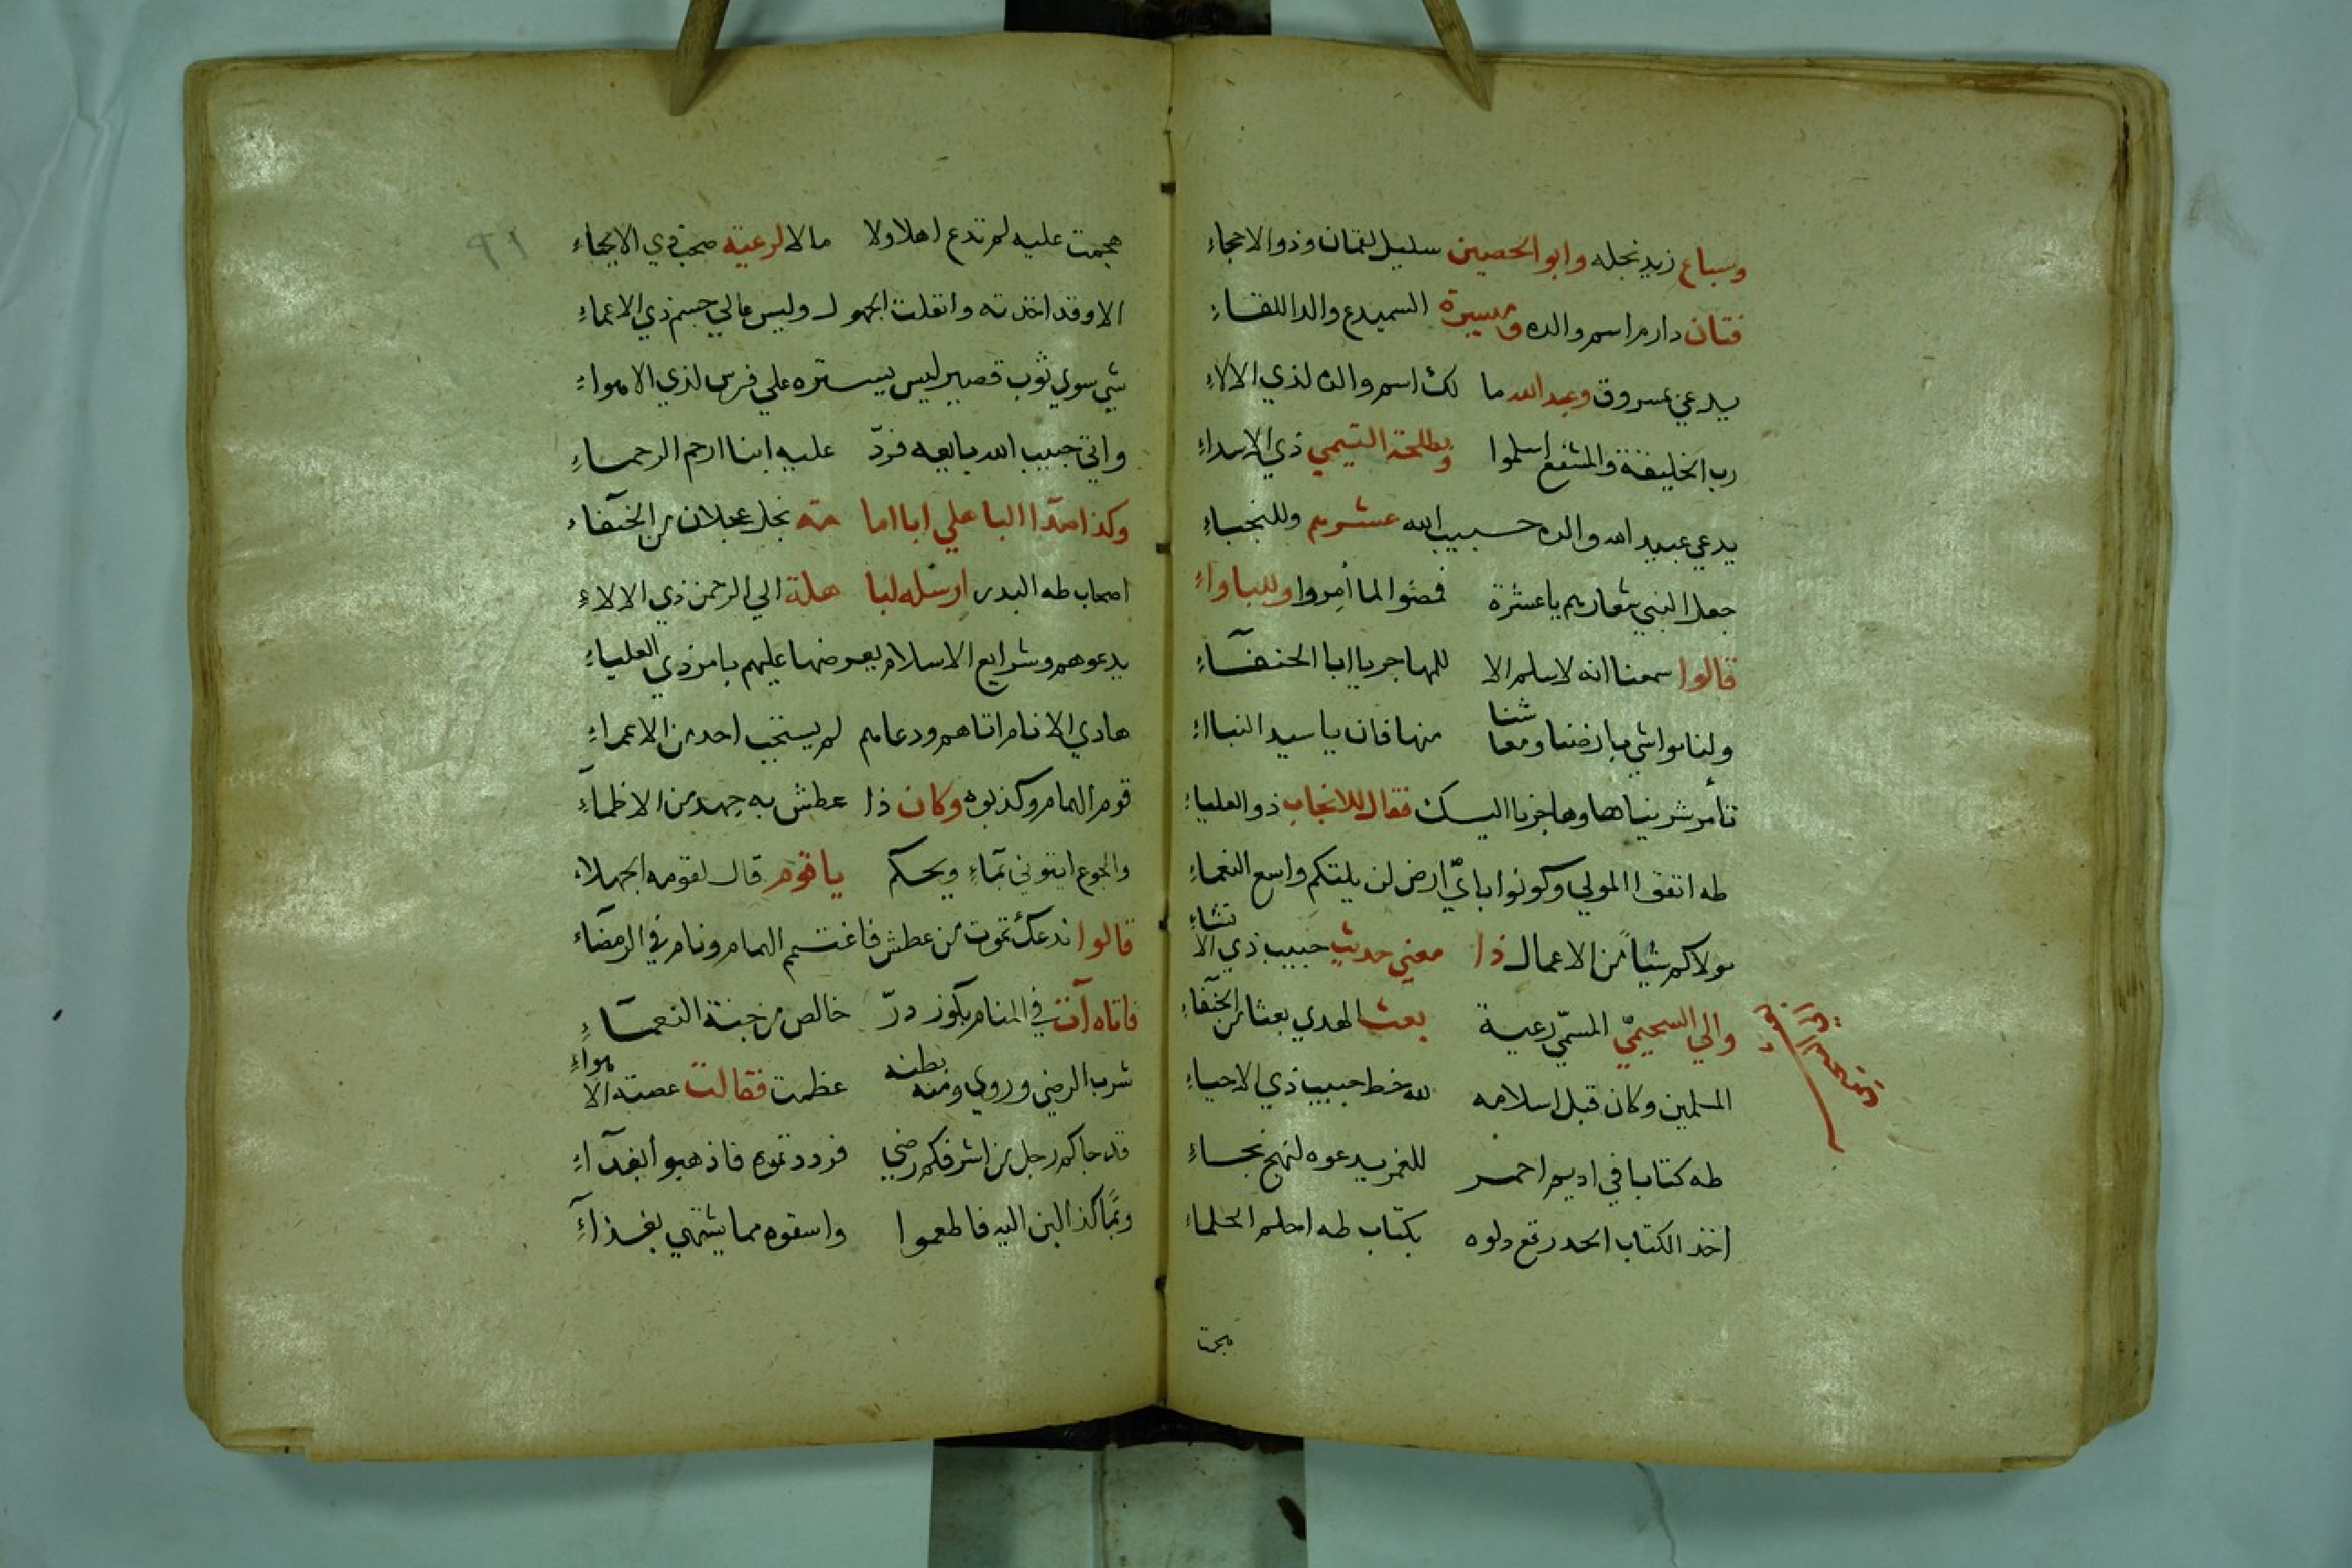 وسباع زيد نجله وابو الحصين سليل لقمان وذو الاحجاء
فتان دارم اسم والده وميسرة السميدع والد اللقاء
يدعي بمسروق وعبد الله ما لك اسم والده لذي الالاء
رب الخليفة والمشفع اسلموا وبطلحة التيمي ذي الاسداء
يدعي عبيد الله والده حسبيب الله عشرهم وللنجباء
جعل النبي شعارهم يا عشرة فمضوا لما أمروا وللباواء
قالوا سمعنا انه لا سلم الا للمهاجر يا ابا الحنفاء
ولنا مواشي بارضنا ومعا شنا منها فان يا سيد النباء
تأمر شريناها وهاجرنا اليك فقال للانجاب ذو العلياء
طه اتقوا المولي وكونوا بايّ ارض لن يلتكم واسع النعماء
مولاكم شيأ من الاعمال ذا معني حديث حبيب ذي الا نشاء
والي السحيميّ المسمّي رعية بعث الهدي بعثا من الحنفاء
المسلمين وكان قبل اسلامه لله خط حبيب ذي الاحياء
طه كتابا في اديم احمر للغمر يدعوه لنهج نجاء
اخذ الكتاب الحد رقع دلوه بكتاب طه احلم الحلماء
هجمت
هجمت عليه لم تدع اهلا ولا مالا لرعية صحب ذي الايحاء
الا وقد اخذته وانفلت الجهول وليس مالي جسم ذي الاعماء
شي سوي ثوب قصير ليس يستره علي فرس لذي الاهواء
واتي حبيب الله بايعه فردّ عليه ابنا ارحم الرحماء
وكذا صدا الباهلي ابا اما مة نجل عجلان من الحنفاء
اصحاب طه البدر ارسله لبا هلة الي الرحمن ذي الالاء
يدعوهم وشرايع الاسلام يعرضها عليهم بامر ذي العلياء
هادي الانام اتاهم ودعاهم لم يستجب احد من الاعمراء
قوم الهمام وكذبوه وكان ذا عطش به جهد من الاظماء
والجوع ايتوني بماء ويحكم يا قوم قال لقومه الجهلاء
قالوا ندعك تموت من عطش فاغتم الهمام ونام في الرمضاء
فاتاه آت في المنام بكوز درّ خالص من جنة النعماء
شرب الرضي وروي ومنه بطنه عظمت فقالت عصبة الا هواء
قد جاكم رجل من اشرفكم رضي فرددتموه فاذهبوا بغداء
وبماء كذا لبن اليه فاطعموا واسقوه مما يشتهي بغذاء